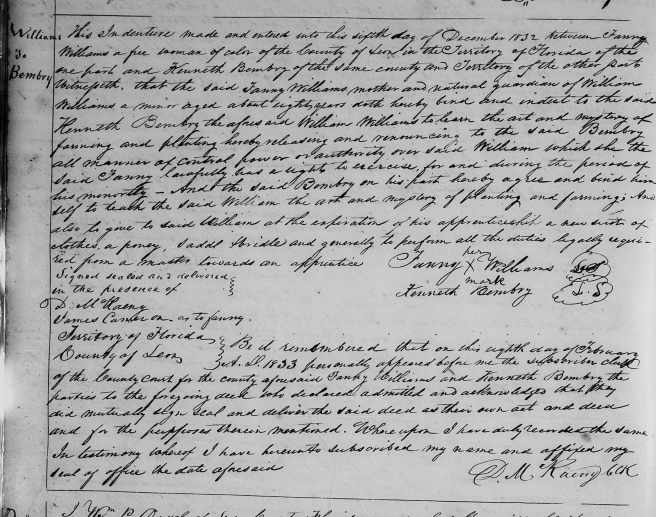 Williams
To
Bembry
This Indenture made and entered into this sixth day of December 1832 between Fanny
Williams a free woman of color of the County of Leon in the Territory of Florida of the
one part and Kenneth Bembry of the same county and Territory of the other part
Witnesseth, that the said Fanny Williams, mother and natural guardian of William
Williams a minor aged about eight years doth hereby bind and indent to the said
Kenneth Bembry the aforesaid William Williams to learn the art and mystery of
farming and planting hereby releasing and renouncing to the said Bembry
all manner of control power or authority over said William which she the
said Fanny lawfully has a right to exercise, for and during the period of
his minority - And the said Bembry on his part hereby agree and bind him
self to teach the said William the art and mystery of planting and farming; And
also to give to said Williams at the expiration of his apprenticeship a new suit of
clothes, a poney, saddl bridle and generally to perform all the duties legally requi-
red from a master towards an apprentice
Fanny her X mark Williams
Signed sealed and delivered
in the presence of
Kenneth Bembry L S
D. McRaeny
James Cameron as to fanny.
Territory of Florida
County of Leon
Be it remembered that on this eighth day of February
A. D. 1833 personally appeared before me the subscriber clerk
of the County Court for the county aforesaid Fanny Williams and Kenneth Bembry the
parties to the foregoing deed who declared admitted and acknowledged that they
did mutually sign seal and deliver the said deed as their own act and deed
and for the purposes therein mentioned. Whereupon I have duly recorded the same
In testimony whereof I have hereunto subscribed my name and affixed my
seal of office the date aforesaid
D. McRaeny Clk